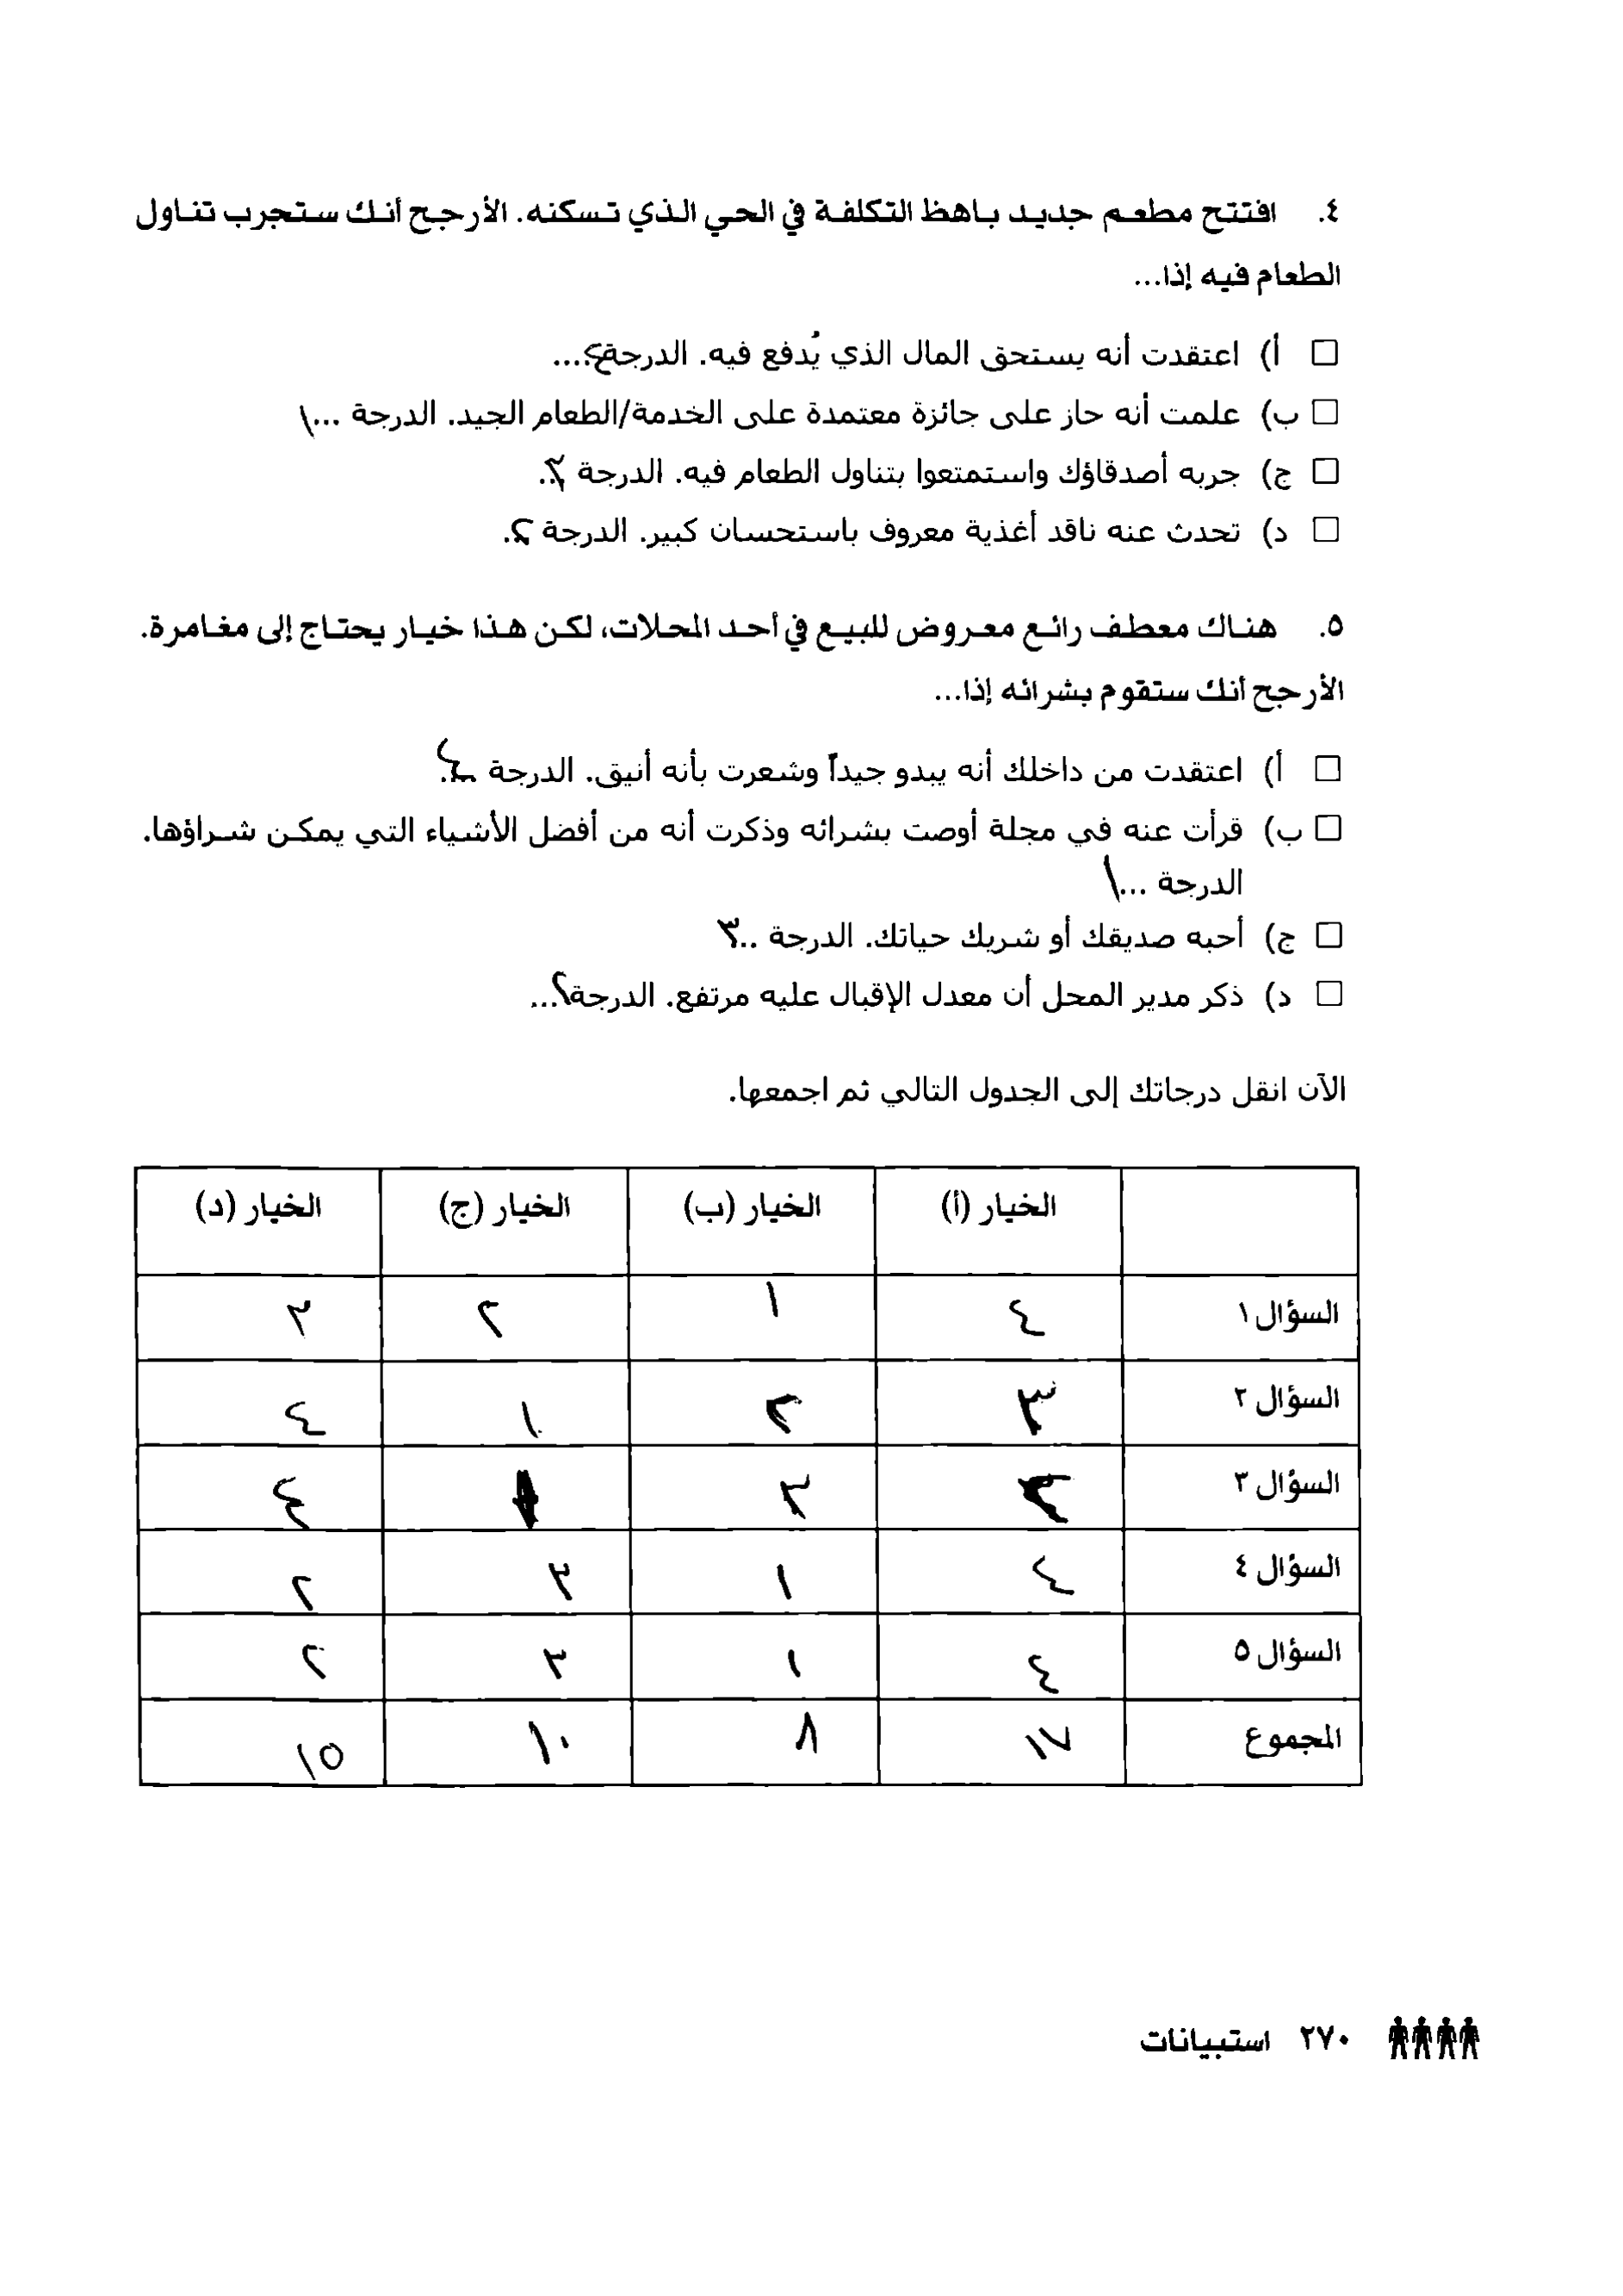 ٤. افتتح مطعم جديد باهظ التكلفة في الحي الذي تسكنه. الأرجح أنك ستجرب تناول
الطعام فيه إذا...
أ) اعتقدت أنه يستحق المال الذي يُدفع فيه. الدرجة ٤...
ب) علمت أنه حاز على جائزة معتمدة على الخدمة/الطعام الجيد. الدرجة ...١
ج) جربه أصدقاؤك واستمتعوا بتناول الطعام فيه. الدرجة ٣.
د) تحدث عنه ناقد أغذية معروف باستحسان كبير. الدرجة ٢.
٥. هناك معطف رائع معروض للبيع في أحد المحلات، لكن هذا خيار يحتاج إلى مغامرة.
الأرجح أنك ستقوم بشرائه إذا...
أ) اعتقدت من داخلك أنه يبدو جيداً وشعرت بأنه أنيق. الدرجة ٤.
ب) قرأت عنه في مجلة أوصت بشرائه وذكرت أنه من أفضل الأشياء التي يمكن شراؤها.
الدرجة ...١
ج) أحبه صديقك أو شريك حياتك. الدرجة ..٣
د) ذكر مدير المحل أن معدل الإقبال عليه مرتفع. الدرجة ٢...
الآن انقل درجاتك إلى الجدول التالي ثم اجمعها.
الخيار (أ) الخيار (ب) الخيار (ج) الخيار (د)
السؤال ١ ٤ ١ ٢ ٣
السؤال ٢ ٣ ٢ ١ ٤
السؤال ٣ ٢ ٣ ١ ٤
السؤال ٤ ٤ ١ ٣ ٢
السؤال ٥ ٤ ١ ٣ ٢
المجموع ١٧ ٨ ١٠ ١٥
٢٧٠ استبيانات